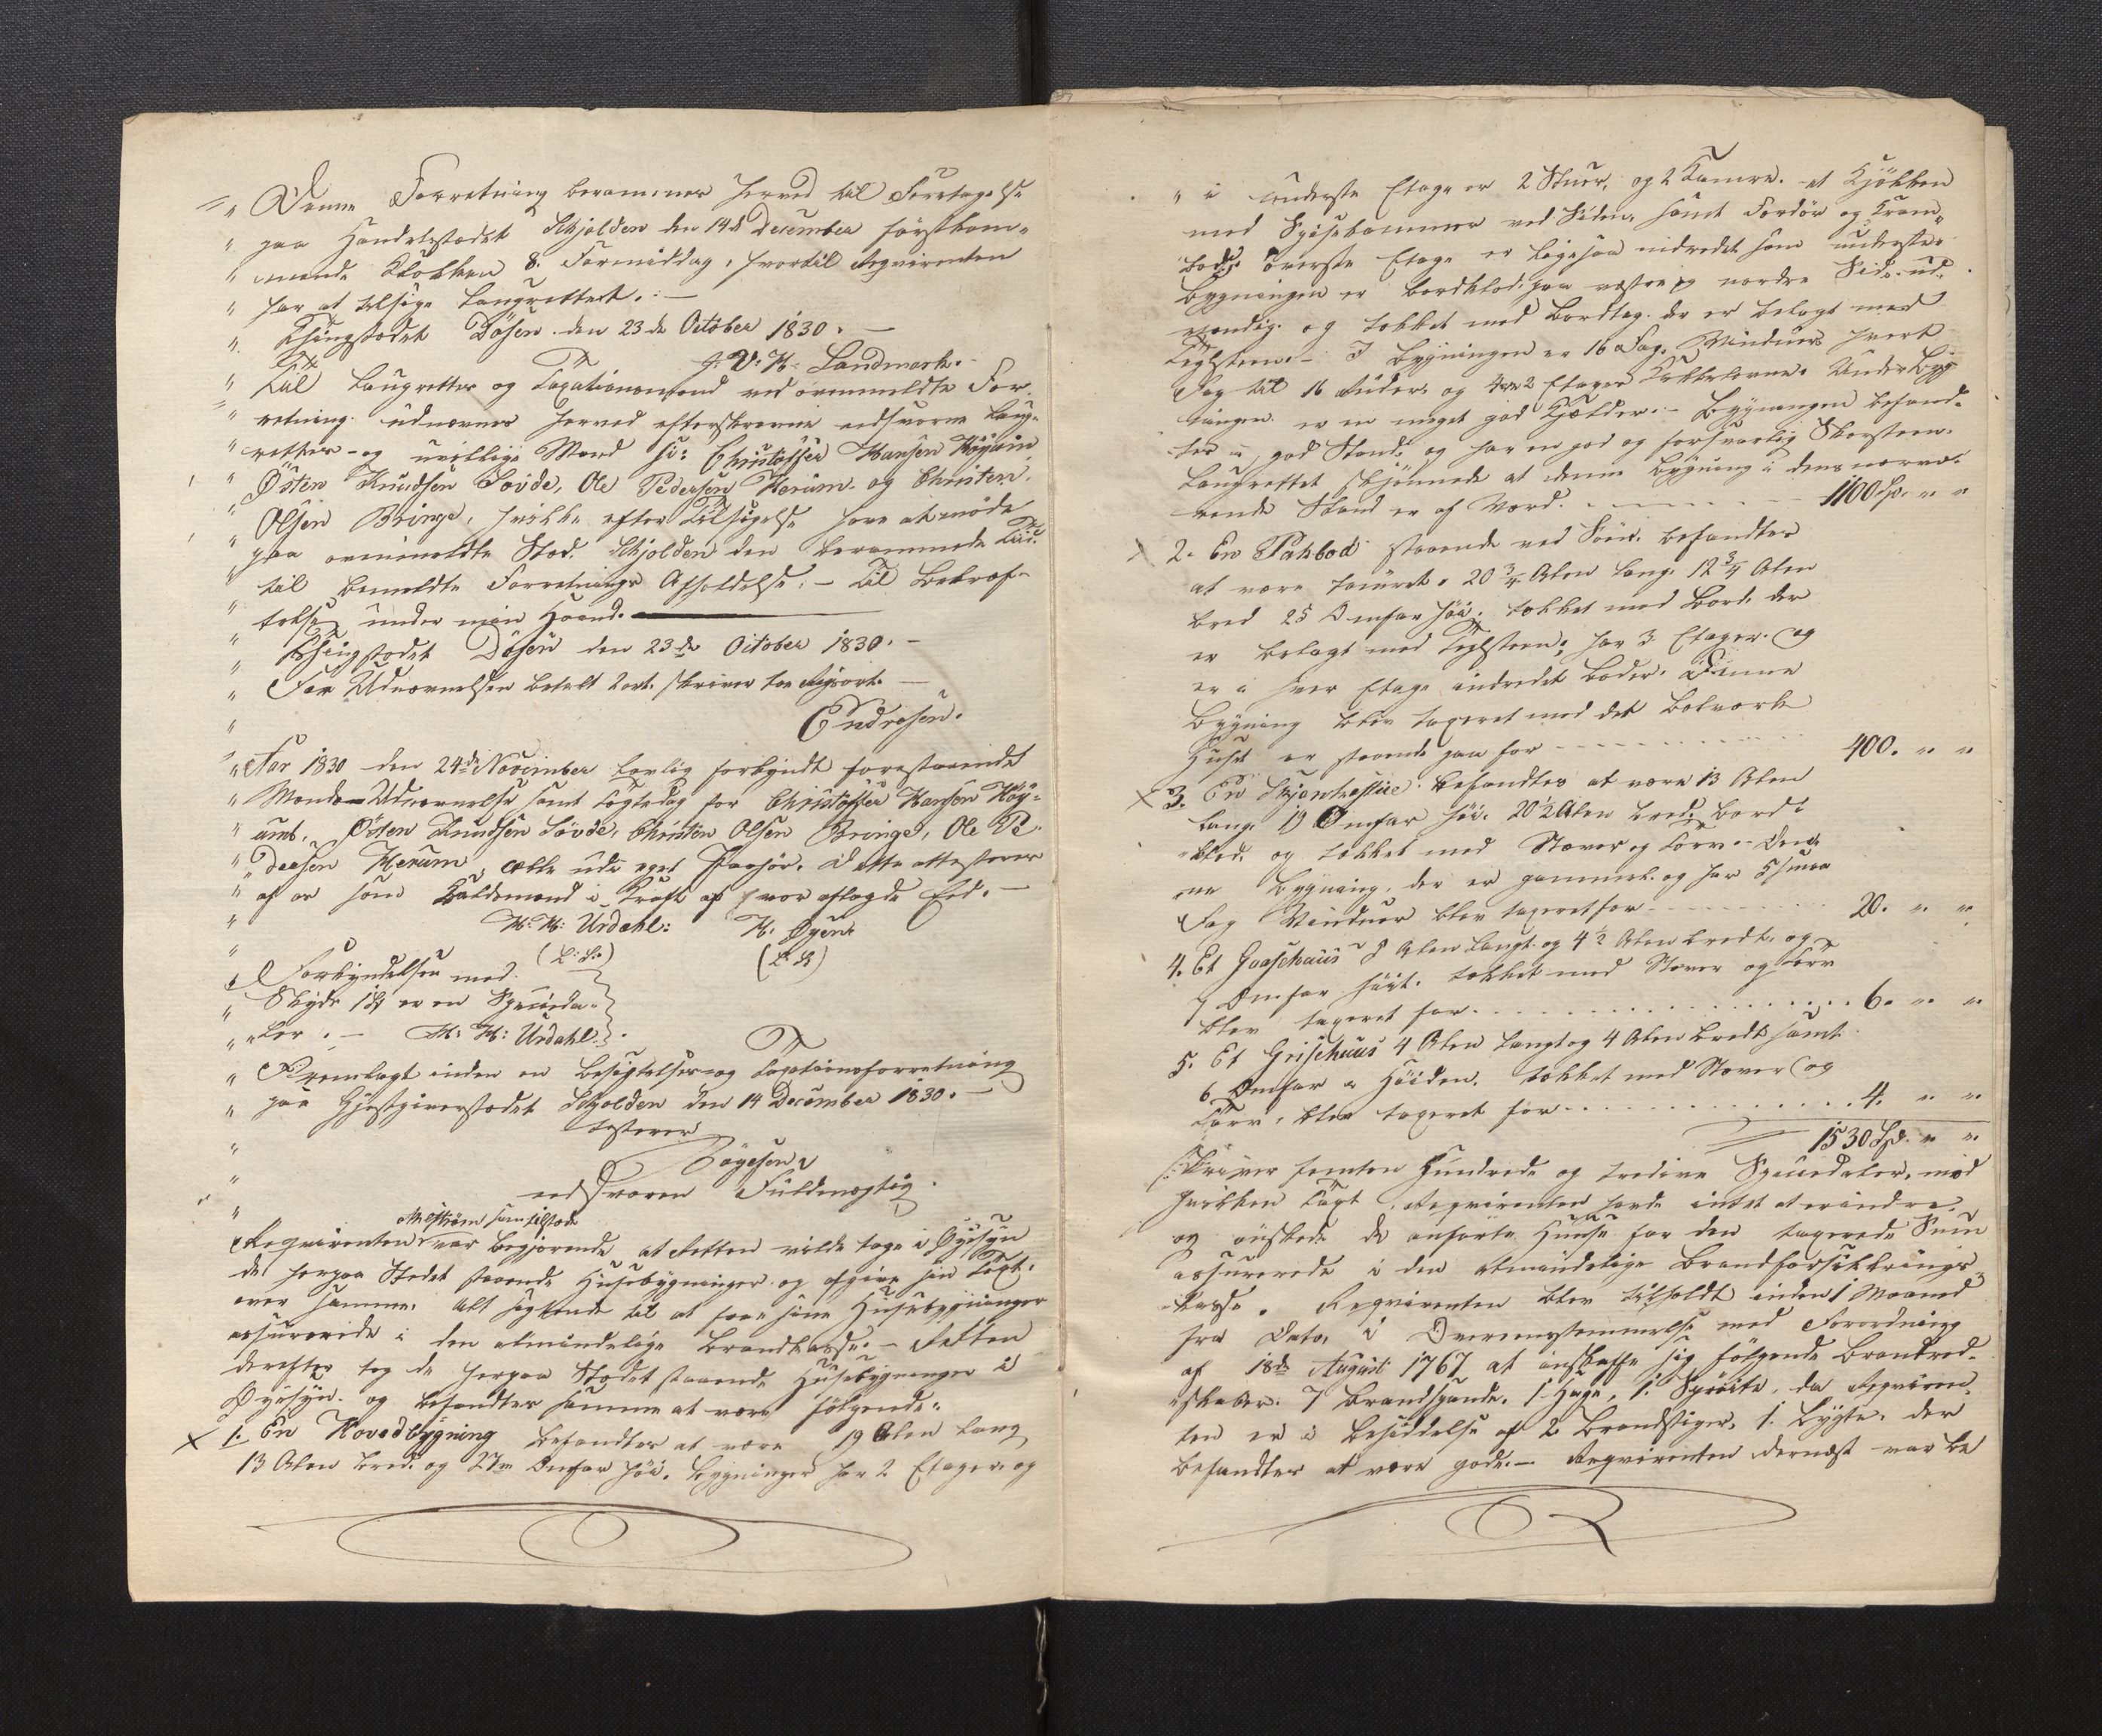 " Denne Forretning berammes herved til Foretagelse
" paa Handelsstedet Skjolden den 14de December førstkom-
" mende Klokken 8. Formiddag, hvortil Reqvirenten
" har at tilsige Laugrettet. —
" Thingstedet Døsen den 23de October 1830. —
J. V. K. Landmark.
" Til Laugrettes og Taxationsmænd ved ovenmeldte For-
" retning udnævnes herved efterskrevne eedsvorne Laug-
" rettes- og uvillige Mænd s: Christoffer Hansen Høyum,
" Østen Knudsen Sovde, Ole Pedersen Herum og Christen
" Olsen Bringe, hvilke efter Tilsigelse have at møde
" paa ovenmeldte Sted Skjolden den berammede Tid
" til bemeldte Forretnings Afholdelse. — Til Bekræf-
" telse under min Haand.
" Thingstedet Døsen den 23de October 1830. —
" For Udnævnelsen betalt 2 ort. skriver to Rigsort. —
" Endresen.
" Aar 1830 den 24de November lovlig forkyndt forestaaende
" Mænds Udnævnelse samt Tægtedag for Christoffer Hansen Høy-
" um, Østen Knudsen Sovde, Christen Olsen Bringe, Ole Pe-
" dersen Herum, alle udi eget Paahør. Dette attesteres
" af os som Kaldsmænd i Kraft af vor aflagde Eed. —
" H. H: Urdahl: K. Øyen
" (L: S:) (L. S)
" Forkyndelsen med
" Skyds 1 Sp er en Specieda-
" ler. — H: H: Urdahl.
" Fremlagt inden en Besigtelses- og Taxationsforretning
" paa Gjestgiverstedet Skjolden den 14 December 1830. —
" testerer
" Søgesen
" eedsvoren Fuldmægtig.
Ahlstrøm som tilstæde
Reqvirenten var begjærende at Retten vilde tage i Øyesyn
de herpaa Stedet staaende Husebygninger og afgive sin Taxt
over samme, alt sigtende til at faae sine Husebygninger
assurerede i den almindelige Brandkasse. — Retten
derefter tog de herpaa Stedet staaende Husebygninger i
Øyesyn og befandtes samme at være følgende:
1. En Hovedbygning befandtes at være 19 Alen lang
13 Alen bred og 27 Omfar høi. Bygningen har 2 Etager og
" i underste Etage er 2 Stuer, og 2 Kamre, et Kjøkken
med Spisekammer ved Siden, samt Fordør og Kram-
bod. Øverste Etage er ligesaa indredet som underste.
Bygningen er bordklæd paa vestre og nordre Side ud-
vendig og tækket med Bordtag, der er belagt med
Teglsteen. — I Bygningen er 16 Fag Vinduer hvert
Fag til 16 Ruder, og 2 Etages Kakkelovne. Under Byg-
ningen er en meget god Kjælder. — Bygningen befand-
tes i god Stand og har en god og forsvarlig Skorsteen.
Laugrettet skjønnede at denne Bygning i dens nærvæ-
rende Stand er af Værd. 1100 Sp. " "
2. En Pakbod staaende ved Søen, befandtes
at være tømret, 20 3/4 Alen lang, 12 3/4 Alen
bred 25 Omfar høi, tækket med Bord, der
er belagt med Teglsteen; har 3 Etager og
er i hver Etage indredet Boder. Denne
Bygning blev taxeret med det Bolværk
Huset er staaende paa for 400. " "
3. En Skjenkestue befandtes at være 13 Alen
lang, 19 Omfar høi, 20 1/2 Alen bred, bord-
klæd, og tækket med Næver og Torv. — Den-
ne Bygning, der er gammel og har 5 smaa
Fag Vinduer blev taxeret for 20. " "
4. Et Gaasehuus 8 Alen langt og 4 1/2 Alen bredt, og
7 Omfar høit, tækket med Næver og Torv
blev taxeret for 6. " "
5. Et Grisehuus 4 Alen langt og 4 Alen bredt samt
6 Omfar i Høiden, tækket med Næver og
Torv, blev taxeret for 4. " "
1530 Spd. " "
skriver femten Hundrede og tredive Speciedaler, med
hvilken Taxt Reqvirenten havde intet at erindre,
og ønskede de anførte Huuse for den taxerede Sum
assurerede i den almindelige Brandforsikkrings-
kasse. Reqvirenten blev tilholdt inden 1 Maaned
fra Dato, i Overeensstemmelse med Forordning
af 18de August 1767 at anskaffe sig følgende Brandred-
skaber: 7 Brandspande, 1 Hage, 1 Sprøite, da Reqviren-
ten er i Besiddelse af 2 Brandstiger, 1 Lygte, der
befandtes at være gode. — Reqvirenten dernæst var be